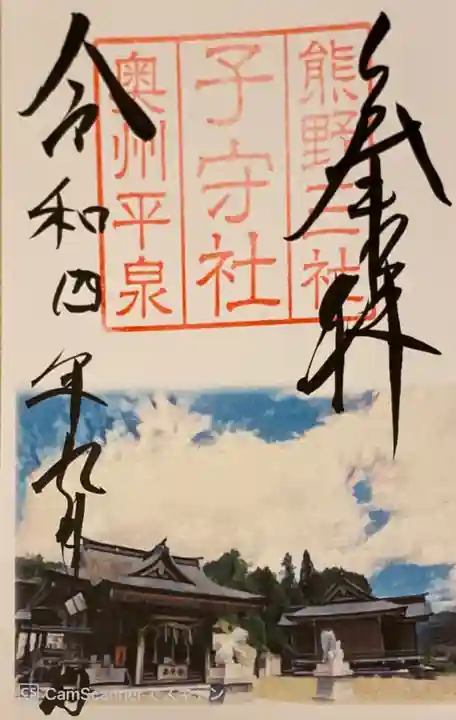 参拝
熊野三社
子守社
奥州平泉
令和四年九月
CS CamScannerでスキャン